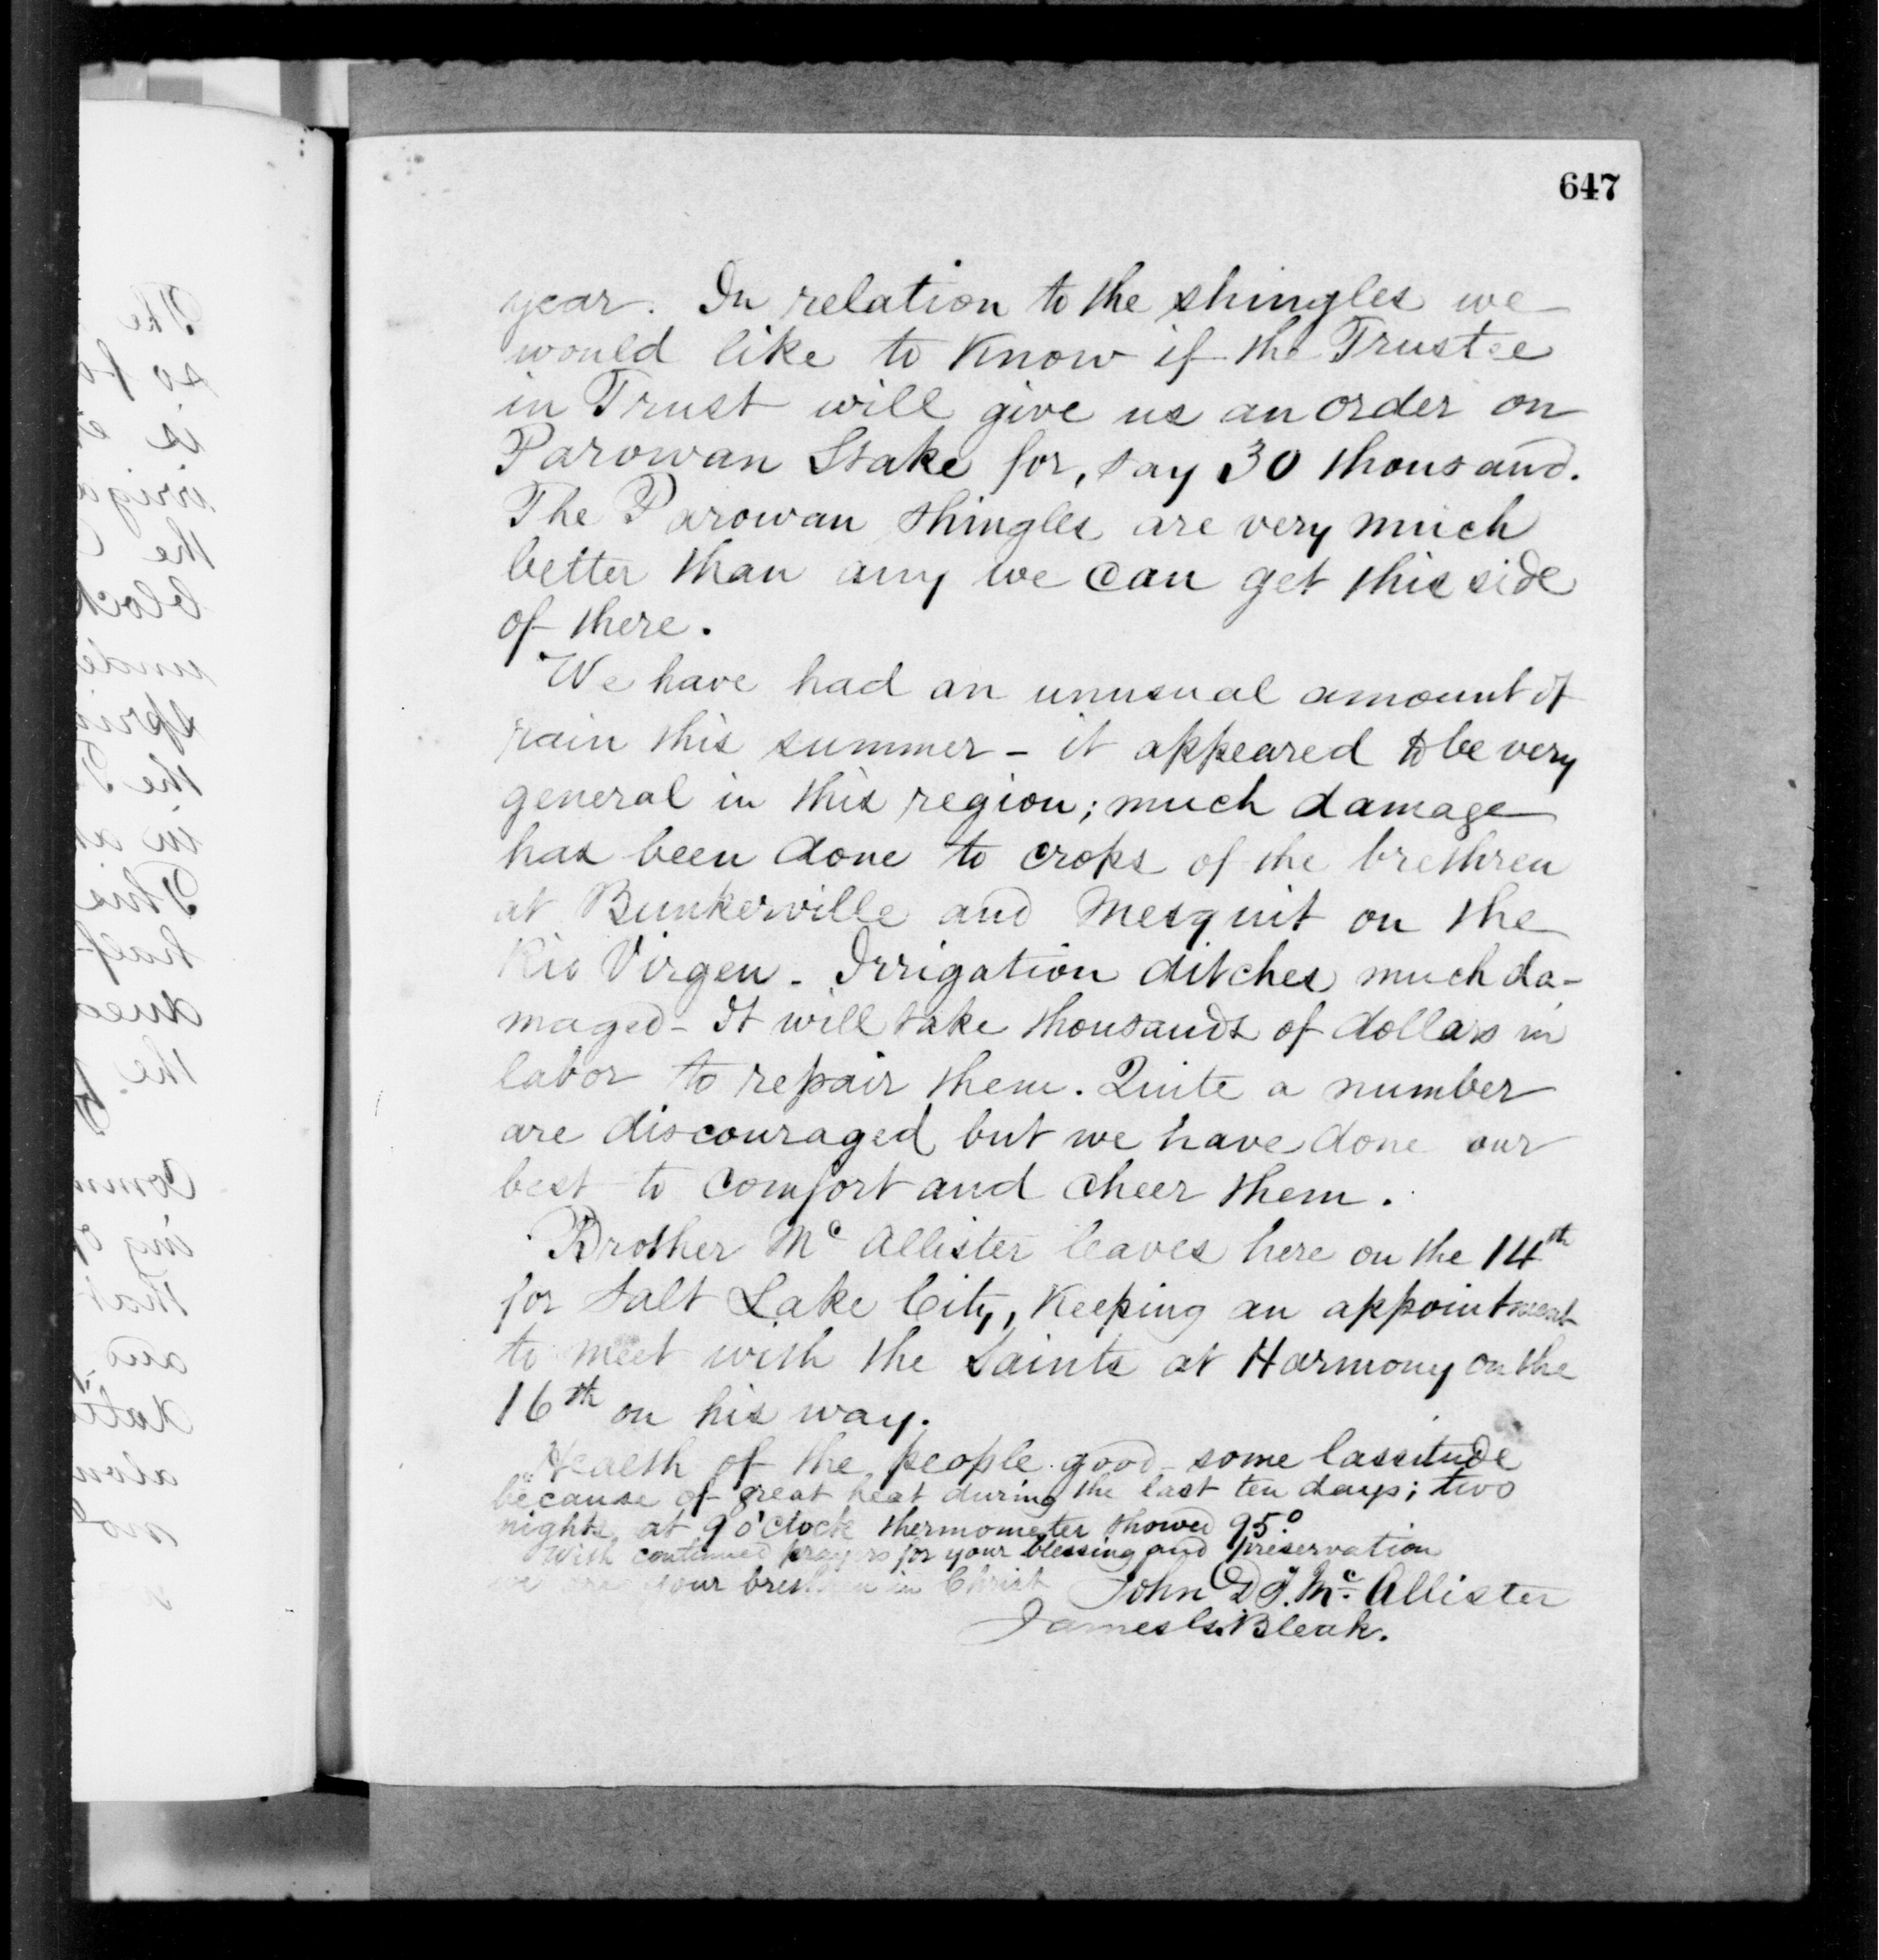 647
year. In relation to the shingles we
would like to know if the Trustee
in Trust will give us an order on
Parowan Stake for, say 30 thousand.
The Parowan shingles are very much
better than any we can get this side
of there.
We have had an unusual amount of
rain this summer - it appeared to be very
general in this region; much damage
has been done to crops of the brethren
at Bunkerville and Mesquit on the
Rio Virgen - Irrigation ditches much da-
maged - It will take thousands of dollars in
labor to repair them. Quite a number
are discouraged but we have done our
best to comfort and cheer them.
Brother Mc Allister leaves here on the 14th
for Salt Lake City, keeping an appointment
to meet with the Saints at Harmony on the
16th on his way.
Health of the people good - some lassitude
because of great heat during the last ten days; two
nights at 9 o'clock thermometer showed 95.°
With continued prayers for your blessing and preservation
we are your brethren in Christ John D. T. Mc. Allister
James G. Bleak.
The
so fo
is
irriga
the
block
unde
sprin
the
in a
This
half
dued
the
Comm
ing o
that
and
alon